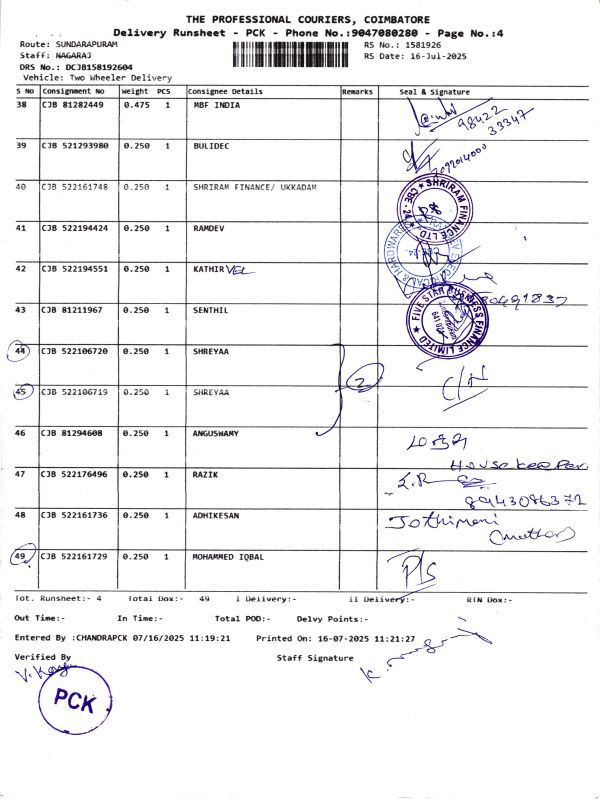 THE PROFESSIONAL COURIERS, COIMBATORE
Delivery Runsheet - PCK - Phone No.:9047080280 - Page No.:4
Route: SUNDARAPURAM RS No.: 1581926
Staff: NAGARAJ RS Date: 16-Jul-2025
DRS No.: DCJB158192604
Vehicle: Two Wheeler Delivery
S No Consignment No Weight PCS Consignee Details Remarks Seal & Signature
38 CJB 81282449 0.475 1 MBF INDIA
98422
33347
39 CJB 521293980 0.250 1 BULIDEC
40 CJB 522161748 0.250 1 SHRIRAM FINANCE/ UKKADAM
SHRIRAM FINANCE LTD CBE-24
41 CJB 522194424 0.250 1 RAMDEV
42 CJB 522194551 0.250 1 KATHIR VEL
43 CJB 81211967 0.250 1 SENTHIL
FIVE STAR BUSINESS FINANCE LIMITED
44 CJB 522106720 0.250 1 SHREYAA
2
45 CJB 522106719 0.250 1 SHREYAA
46 CJB 81294608 0.250 1 ANGUSWAMY
House keeper
47 CJB 522176496 0.250 1 RAZIK
8943086372
48 CJB 522161736 0.250 1 ADHIKESAN Jothimani
(mother)
49 CJB 522161729 0.250 1 MOHAMMED IQBAL P/S
Tot. Runsheet:- 4 Total Dox:- 49 I Delivery:- II Delivery:- RTN Dox:-
Out Time:- In Time:- Total POD:- Delvy Points:-
Entered By :CHANDRAPCK 07/16/2025 11:19:21 Printed On: 16-07-2025 11:21:27
Verified By Staff Signature
PCK